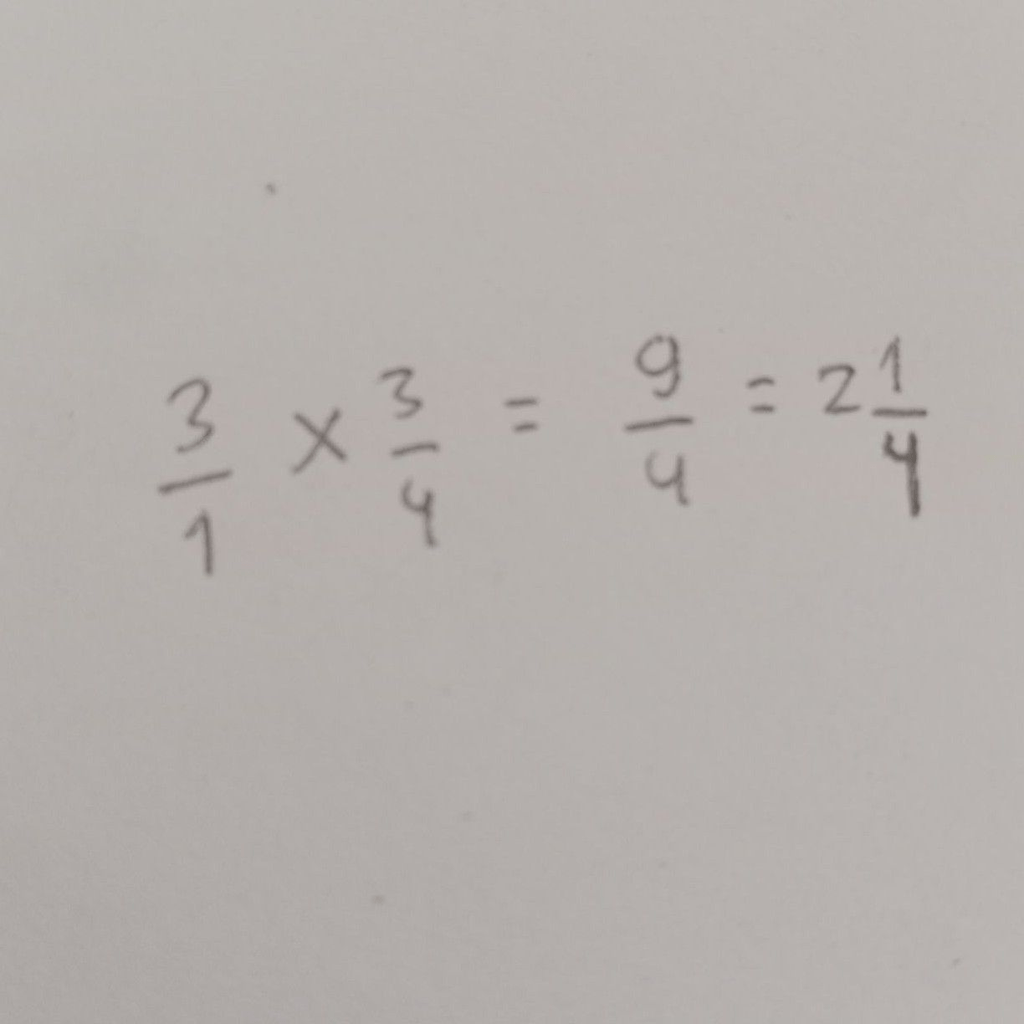 3/1 × 3/4 = 9/4 = 2 1/4